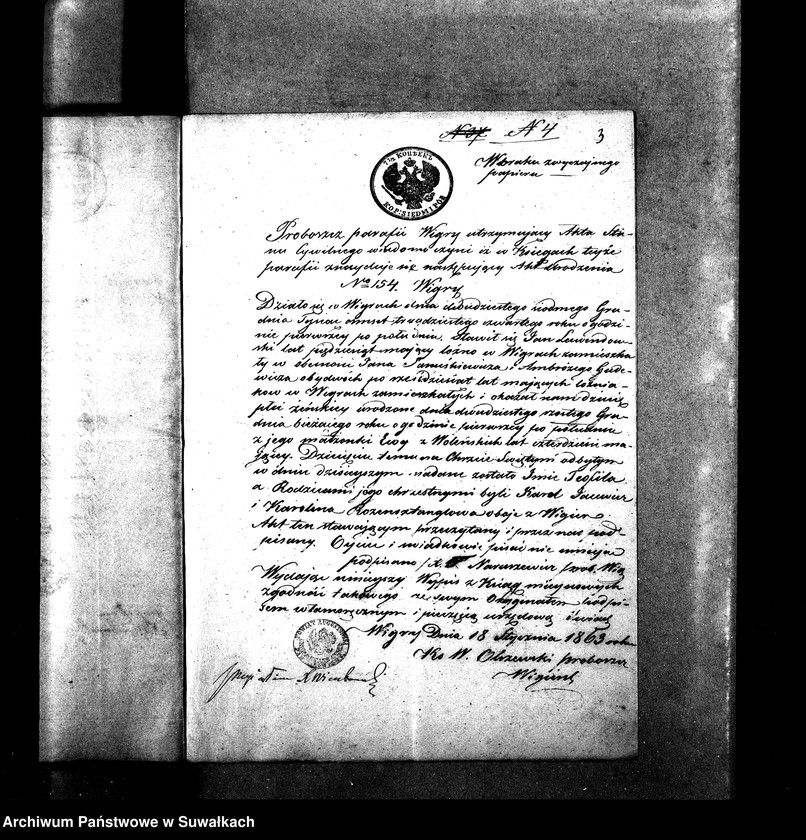 N 37 N 4 3
7½ КОПѢЕКЪ
KOP: SIEDM I PÓŁ
W braku zwyczajnego
papieru
Proboszcz parafii Wigry utrzymujący Akta Sta-
nu Cywilnego wiadomo czyni iż w Księgach tejże
parafii znajduje się następujący Akt Urodzenia
Nro 154. Wigry
Działo się w Wigrach dnia dwudziestego siódmego Gru-
dnia Tysiąc ośmset trzydziestego czwartego roku o godzi-
nie pierwszej po południu. Stawił się Jan Lewandow-
ski lat pięćdziesiąt mający w Wigrach zamieszka-
ły w obecności Jana i Ambrożego
obydwóch po sześćdziesiąt lat mających
w Wigrach zamieszkałych i okazał nam dziecię
płci żeńskiej urodzone dnia dwudziestego szóstego Gru-
dnia bieżącego roku o godzinie pierwszej po południu
z jego małżonki Ewy z Wolińskich lat czterdzieści ma-
jącej. Dziecięciu temu na Chrzcie Świętym odbytym
w dniu dzisiejszym nadane zostało Imię Teofila
a Rodzicami jego chrzestnymi byli Karol
i Karolina oboje z Wigier
Akt ten stawającym przeczytany i przez nas pod-
pisany. Ojciec i świadkowie pisać nie umieją
podpisano X. Naruszewicz prob. Wig
Wydając niniejszy Wypis z Ksiąg miejscowych
zgodność takowego ze swym Oryginałem podpi-
sem własnoręcznym i pieczęcią urzędową
Wigry Dnia 18 Stycznia 1863 roku
Ks W. Olszewski proboszcz
Wigierski
Archiwum Państwowe w Suwałkach